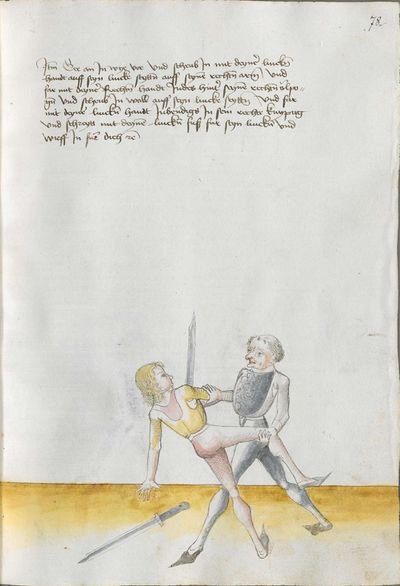 78
Itm Gee an In wye vor und scheub In mit deyner lincken
handt auff seyn lincke seytten auff seyne rechten arm Und
far mit deyner rechten handt Indes hinter seyne rechten elpo-
gen Und scheub In woll auff seyn lincke seytten Und far
mit deyner lincken handt Inbendigs In sein rechte knypug
Und schreyt mit deynem lincken fuß fur seyn lincken Und
wirff In fur dich